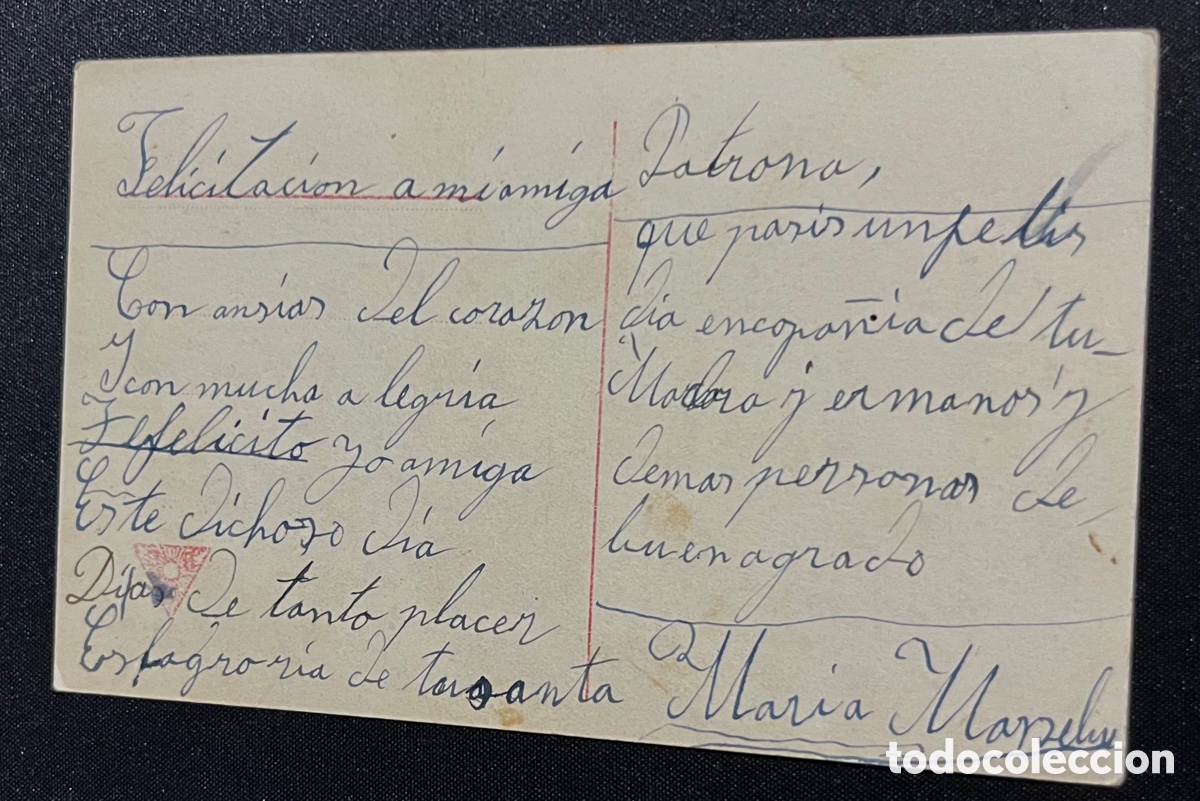 Felicitacion a mi amiga
Con ansias del corazon
Y con mucha alegria
Te felicito yo amiga
Este dichoso dia
Dias de tanto placer
Es la groria de tu santa
Patrona,
que pasis un feliz
dia en copañia de tu
Madra y ermanos y
demas perssonas de
buen agrado
Maria
todocoleccion